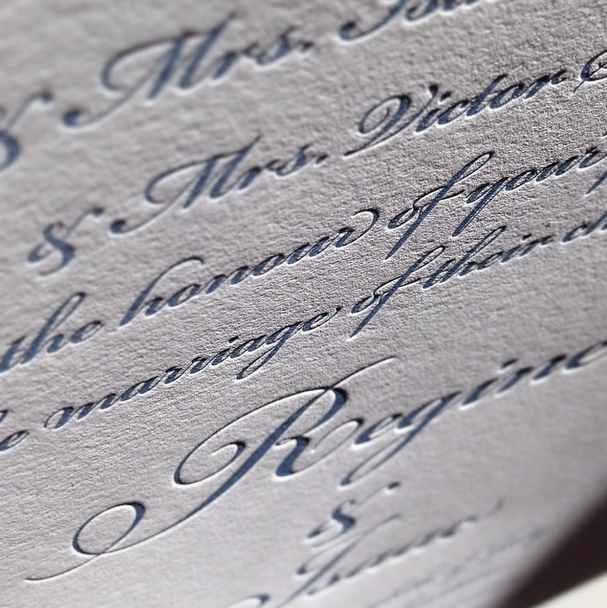 & Mrs.
& Mrs. Victor
the honour of your
marriage of their
Regin
&